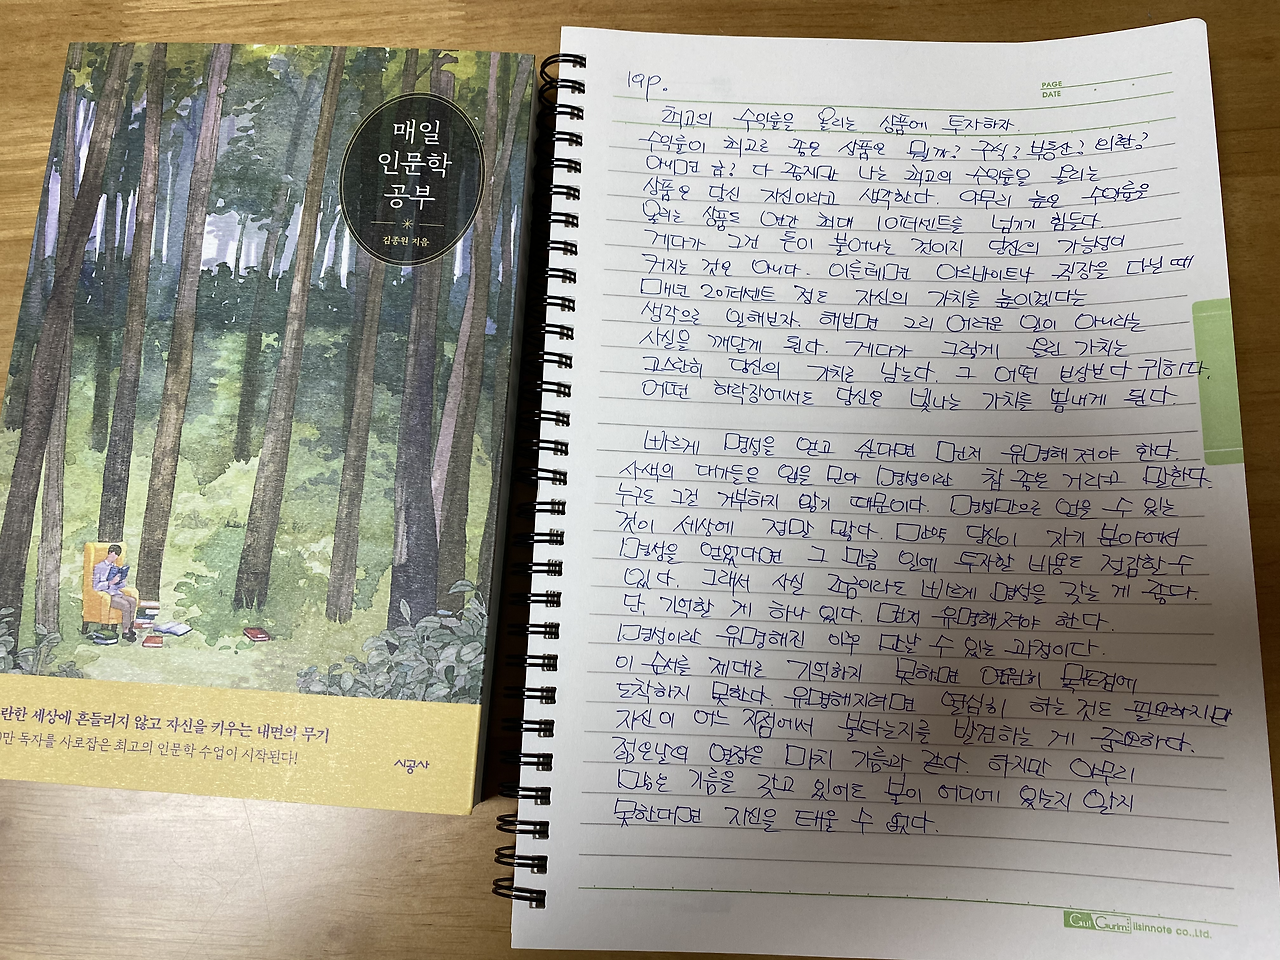 매일
인문학
공부
김종원 지음
란한 세상에 흔들리지 않고 자신을 키우는 내면의 무기
만 독자를 사로잡은 최고의 인문학 수업이 시작된다!
시공사
19p.
PAGE
DATE
최고의 수익률을 올리는 상품에 투자하자.
수익률이 최고로 좋은 상품은 뭘까? 주식? 부동산? 외환?
아니면 금? 다 좋지만 나는 최고의 수익률을 올리는
상품은 당신 자신이라고 생각한다. 아무리 높은 수익률을
올리는 상품도 연간 최대 10퍼센트를 넘기기 힘들다.
게다가 그건 돈이 불어나는 것이지 당신의 가능성이
커지는 것은 아니다. 이를테면 아르바이트나 직장을 다닐 때
매년 20퍼센트 정도 자신의 가치를 높이겠다는
생각으로 일해보자. 해보면 그리 어려운 일이 아니라는
사실을 깨닫게 된다. 게다가 그렇게 올린 가치는
고스란히 당신의 가치로 남는다. 그 어떤 보상보다 귀하다.
어떤 하락장에서도 당신은 빛나는 가치를 뽐내게 된다
빠르게 명성을 얻고 싶다면 먼저 유명해져야 한다.
사색의 대가들은 입을 모아 명성이란 참 좋은 거라고 말한다.
누구도 그걸 거부하지 않기 때문이다. 명성만으로 얻을 수 있는
것이 세상에 정말 많다. 만약 당신이 자기 분야에서
명성을 얻었다면 그 만큼 일에 투자할 비용도 절감할 수
있다. 그래서 사실 조금이라도 빠르게 명성을 갖는 게 좋다.
단, 기억할 게 하나 있다. 먼저 유명해져야 한다.
명성이란 유명해진 이후 만날 수 있는 과정이다.
이 순서를 제대로 기억하지 못하면 영원히 목표점에
도착하지 못한다. 유명해지려면 열심히 하는 것도 필요하지만
자신이 어느 지점에서 불타는지를 발견하는 게 중요하다.
젊은날의 열정은 마치 기름과 같다. 하지만 아무리
많은 기름을 갖고 있어도 불이 어디에 있는지 알지
못한다면 자신을 태울 수 없다.
Gul Gurimi ilsinnote co.,Ltd.